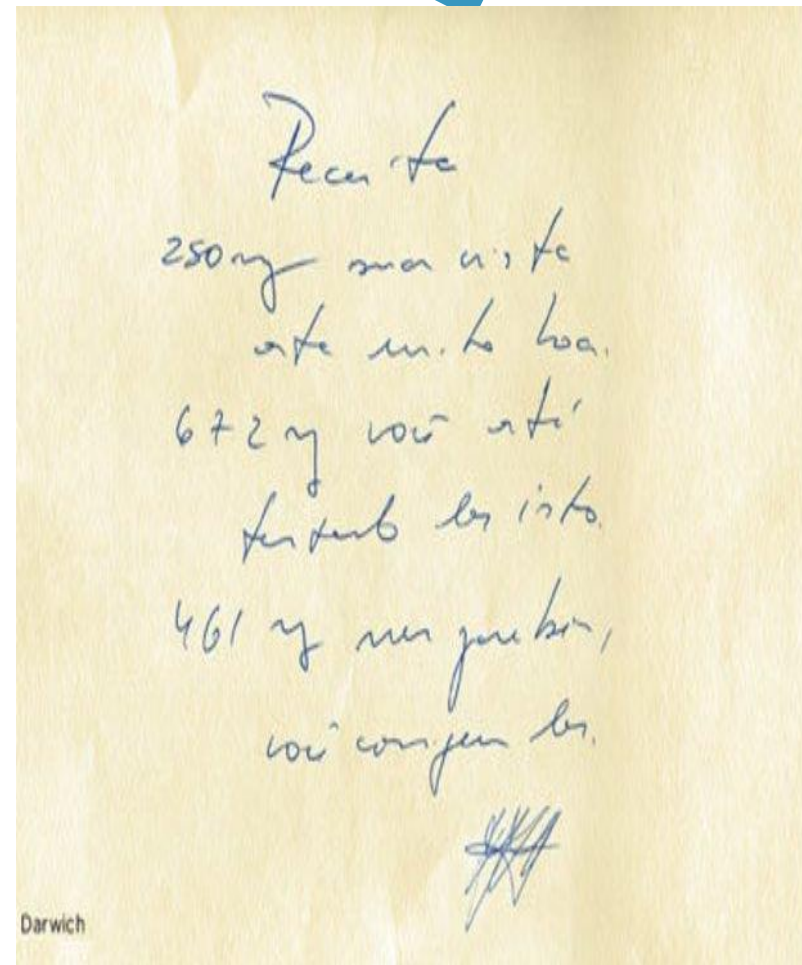 Receita
250mg sua vista
está muito boa.
672mg você até
tentando ler isto.
461mg meus parabéns,
você conseguiu ler.
Darwich